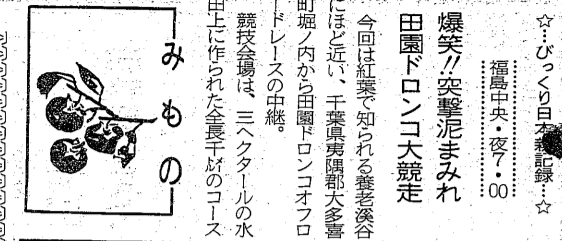 ☆…びっくり日本新記録…☆
福島中央・夜7・00
爆笑!!突撃泥まみれ
田園ドロンコ大競走
今回は紅葉で知られる養老溪谷
にほど近い、千葉県夷隅郡大多喜
町堀ノ内から田園ドロンコオフロ
ードレースの中継。
競技会場は、三ヘクタールの水
田上に作られた全長千㍍のコース
みもの